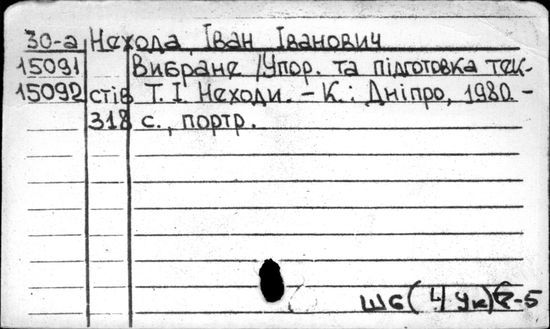 30-а Нехода Іван Іванович
15091 Вибране /Упор. та підготовка тек-
15092 стів Т.І. Неходи. – К.: Дніпро, 1980. –
318 с., портр.
Ш6(4Ук)